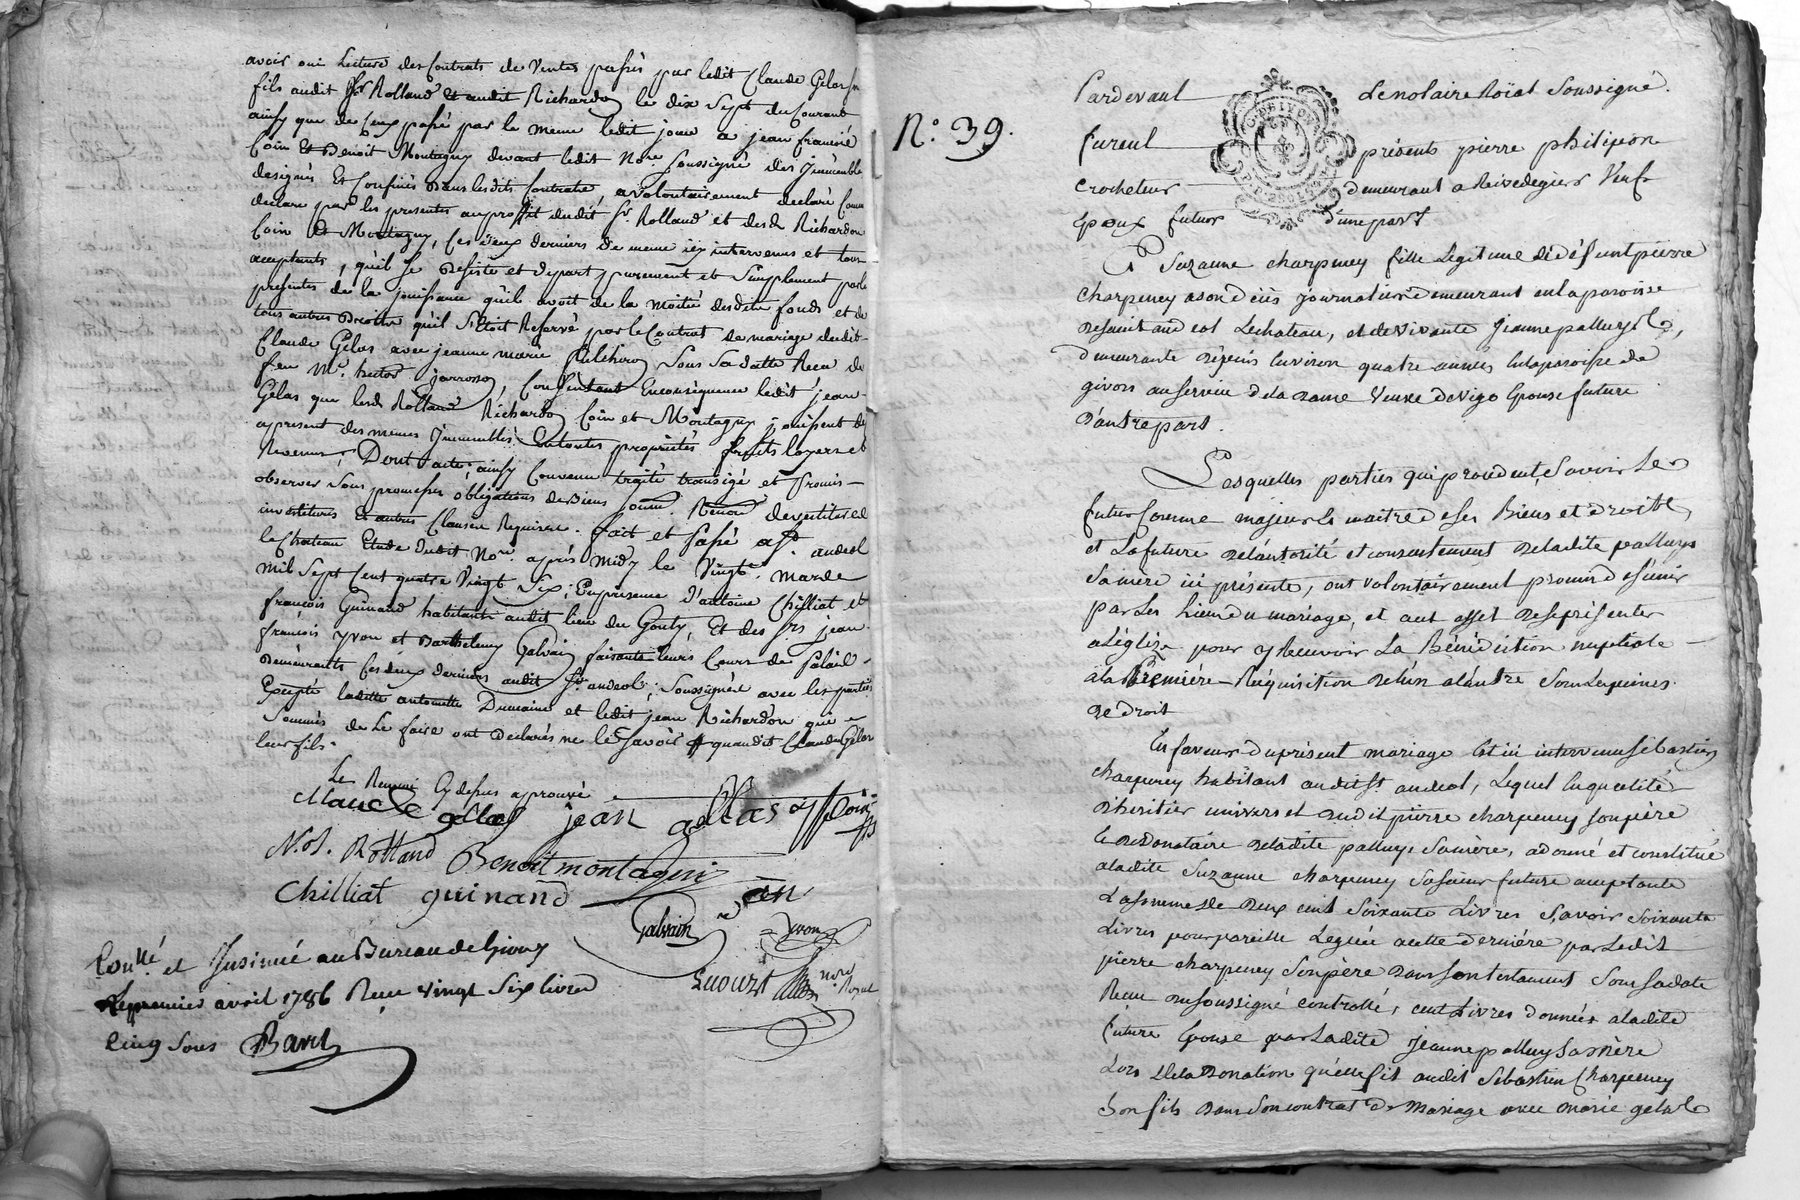 avoir oui Lecture des Contrats de Ventes passés par ledit Claude Gelas
fils audit Sr. Rolland et audit Richardon le dix Sept du Courant
ainsy que de Ceux passé par le meme ledit jour a jean francois
Coin et Benoit Montagny devant ledit Nore. Soussigné des Immeubles
designés Et Confinés dans lesdits Contrats, a volontairement declaré Comme
declare par les presentes au proffit dudit Sr. Rolland et desd. Richardon
Coin et Montagny, Ces deux derniers de meme icy intervenus et tous
acceptants, qu'il se desiste et depart purement et Simplement par les
presentes de la jouissance qu'il avoit de la moitié desdits fonds et de
tous autres Droits qu'il S'etoit Reservé par le Contrat de mariage dudit
Claude Gelas avec jeanne marie Sous Sa datte Recu de
feu Me. hector jarrosson, Consentant En consequence ledit jean
Gelas que lesd. Rolland Richardon Coin et Montagny jouissent dès
apresent des memes Immeubles En toutes proprietés fruits loyers et
Revenus, Dont acte; ainsy Convenu traité transigé et Promis
observer Sous promesses obligations de Biens Soum. Renon. devestitures
investitures Et autres Clauses Requises. fait et Passé a St. andeol
le Chateau Etude dudit Nore. après midy le Vingt mars de
mil Sept Cent quatre Vingt Six; En presence d'antoine Chilliat et
françois Guinand habitants audit lieu du Gouty, Et des Srs jean
françois yvon et Barthelemy Galvain faisants leurs Cours de
Demeurants Ces deux derniers audit St. andeol; Soussignés avec les parties
Excepté ladite antoinette Dumaine et ledit jean Richardon qui
Sommés de Le faire ont declarés ne le Sçavoir # quaudit Claude Gelas
leur fils.
Le Renvoi Cy dessus approuvé
Claude gellas jean gellas Coin
N.A. Rolland Benoit montagni
Chilliat guinand
Galvain yvon
nore Royal
Conllé. et Insinué au Bureau de Givors
Le premier avril 1786 Recu vingt Six livres
Cinq Sous Barel
N.° 39.
Pardevant Le notaire Roïal Soussigné.
furent présents pierre philipon
crocheteur demeurant a Rivedegier Veuf
Epoux futur d'une part
Et Suzanne charpeney fille Legitime de défunt pierre
charpeney a son décès journalier demeurant en la paroisse
de saint andeol Lechateau, et de vivante Jeanne palluy
demeurante depuis Environ quatre années en la paroisse de
givors au service de la dame Veuve de Vigo Epouse future
d'autre part.
Lesquelles parties qui procedent, Savoir Le
futur Comme majeur & maitre de ses Biens et droits,
et La future de l'autorité et consentement de ladite palluy
Sa mère ici présente, ont volontairement promis de s'unir
par Les Liens du mariage, et aut effet de se présenter
a L'église pour y Recevoir La Bénédiction nuptiale
a la Première Réquisition de l'un a l'autre Sous Les peines
de droit
En faveur du présent mariage Est ici intervenu Sébastien
charpeney habitant audit St andeol, Lequel En qualité
d'heritier universel dudit pierre charpeney son père
& donataire de ladite palluy Sa mère, a donné et constitué
a ladite Suzanne charpeney Sa soeur future acceptante
La somme de deux cent soixante Livres Savoir soixante
Livres pour pareille Leguée a cette dernière par Ledit
pierre charpeney Son père dans son testament Sous sa date
Recu du soussigné controllé, cent Livres données a ladite
future Epouse par Ladite Jeanne palluy Sa mère
Lors de la Donation qu'elle fit audit Sébastien Charpeney
Son fils dans Son contrat de mariage avec marie gelas